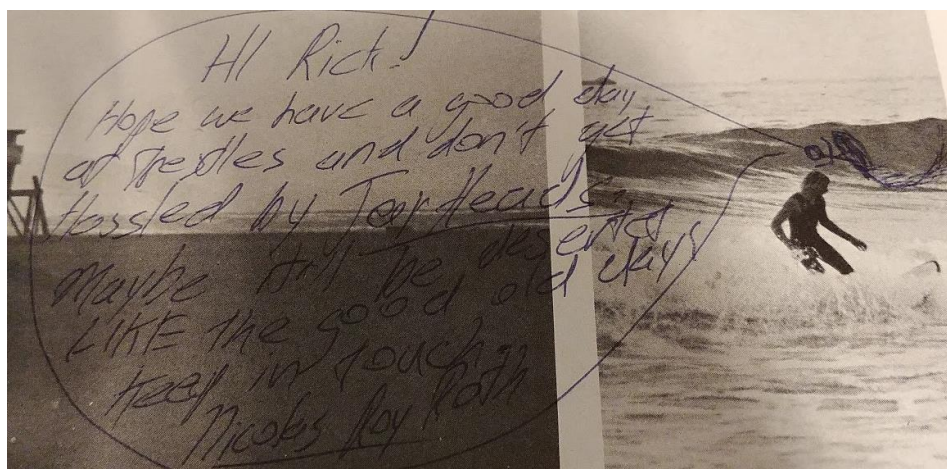 HI Rich!
Hope we have a good day
at Trestles and don't get
Hassled by Jar Heads.
Maybe it'll be deserted
LIKE the good old days
Keep in touch.
Nicolas Roy Roth